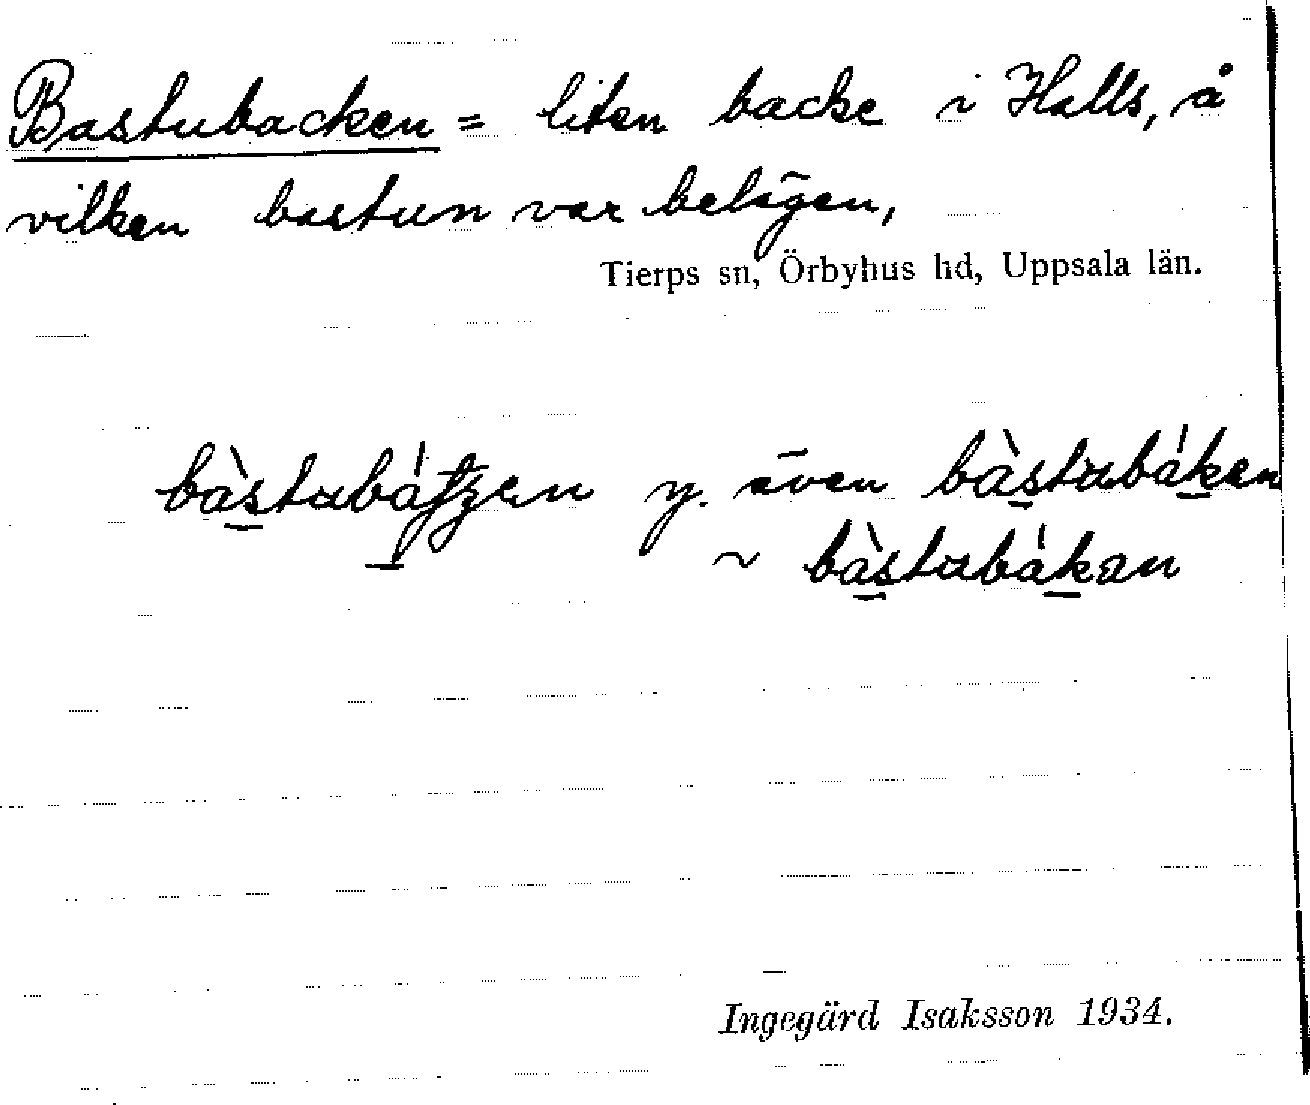 Bastubacken = liten backe i Halls, å
vilken bastun var belägen,
Tierps sn, Örbyhus hd, Uppsala län.
y. även bàstubáken
~ bàstubákan
Ingegärd Isaksson 1934.